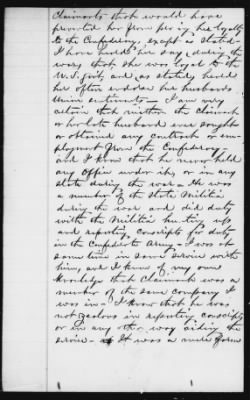 Claimants that would have
prevented her from being loyal
to the Confederacy, except as stated -
I have heard her say, during the
war, that she was loyal to the
U.S. Govt, and as stated, heard
her often endorse her husbands
Union sentiments - I am very
certain that neither the claimant
or her late husband ever sought
or obtained any contract or em-
ployment from the Confederacy -
and I know that he never held
any office under it, or in any
state during the war - He was
a member of the State Militia
during the war and did duty
with the Militia hunting up
and reporting conscripts for duty
in the Confederate Army - I was at
same time in same service with
him, and I know of my own
knowledge that Claimant was a
member of the same company I
was in - I know that he was
not zealous in reporting conscripts
or in any other way aiding the
service - It was a mere form